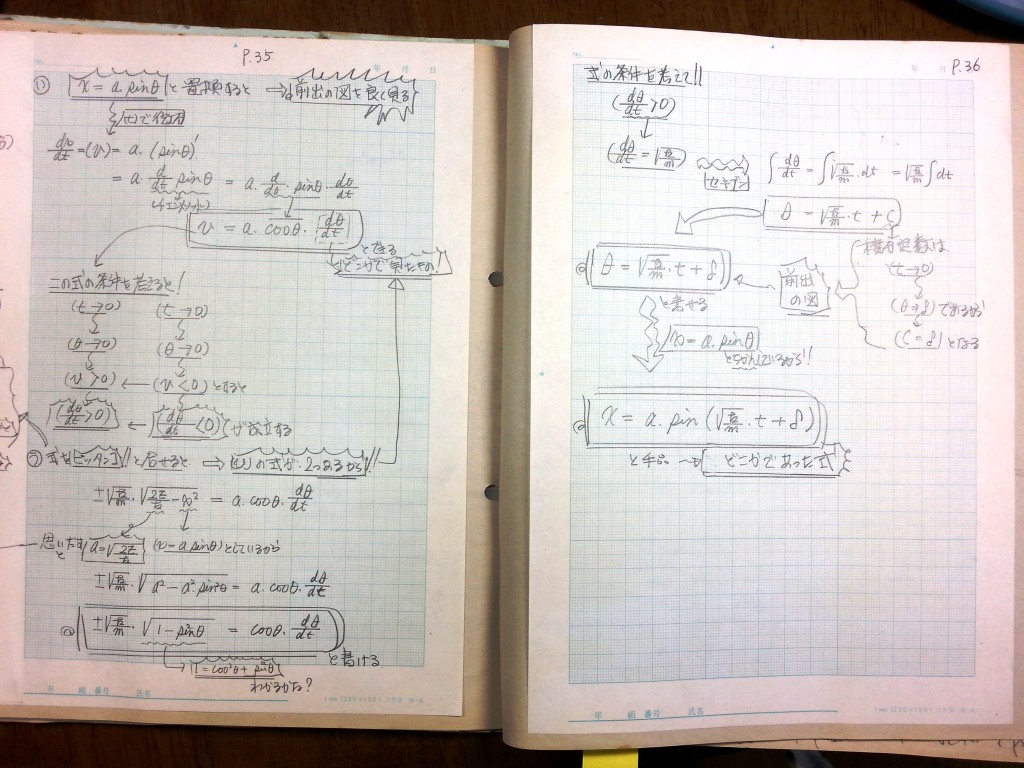 P.35
年 月 日
x = a.sinθ と置換すると ⇒ 前出の図を良く見る
(t)で微分
dx/dt = (v) = a.(sinθ)'
= a.d/dt sinθ = a.d/dθ.sinθ.dθ/dt
v = a.cosθ.dθ/dt となる
どこかで
この式の条件を考えると!
(t→0) (t→0)
(θ→0) (θ→0)
(v>0) ← (v<0) とすると
(dθ/dt>0) ← (dθ/dt<0) が成立する
式を と合せると → (v)の式が2つあるから!!
±√k/m.√2E/k-x² = a.cosθ.dθ/dt
思いだすと a=√2E/k (x=a.sinθ)としているから
±√k/m.√a²-a².sin²θ = a.cosθ.dθ/dt
±√k/m.√1-sin²θ = cosθ.dθ/dt
と書ける
1=cos²θ+sin²θ
わかるかな?
年 組 番号 氏名
年 月 P.36
式の条件を考えて!!
(dθ/dt>0)
(dθ/dt=√k/m)
セキブン
∫dθ/dt = ∫√k/m.dt = √k/m∫dt
θ = √k/m.t + C
積分定数は
(t→0)
(θ→δ)であるから
(C=δ)となる
θ = √k/m.t + δ
前出の図
と書ける
x = a.sinθ
x = a.sin(√k/m.t+δ)
どこかであった式
年 組 番号 氏名